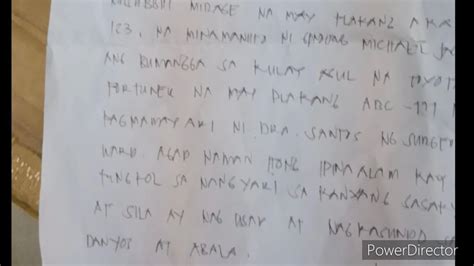 MITSUBISHI MIRAGE NA MAY PLAKANG AKA
123, NA MINAMANEHO NI GINOONG MICHAEL
ANG BUMANGGA SA KULAY ASUL NA TOYOT
FORTUNER NA MAY PLAKANG ABC-777
PAGMAMAYARI NI DRA. SANTOS NG SURGE
WARD. AGAD NAMAN ITONG IPINAALAM KAY
TUNGKOL SA NANGYARI SA KANYANG SASAKY
AT SILA AY NAG USAP AT NAGKASUNDO SA
DANYOS AT ABALA.
PowerDirector